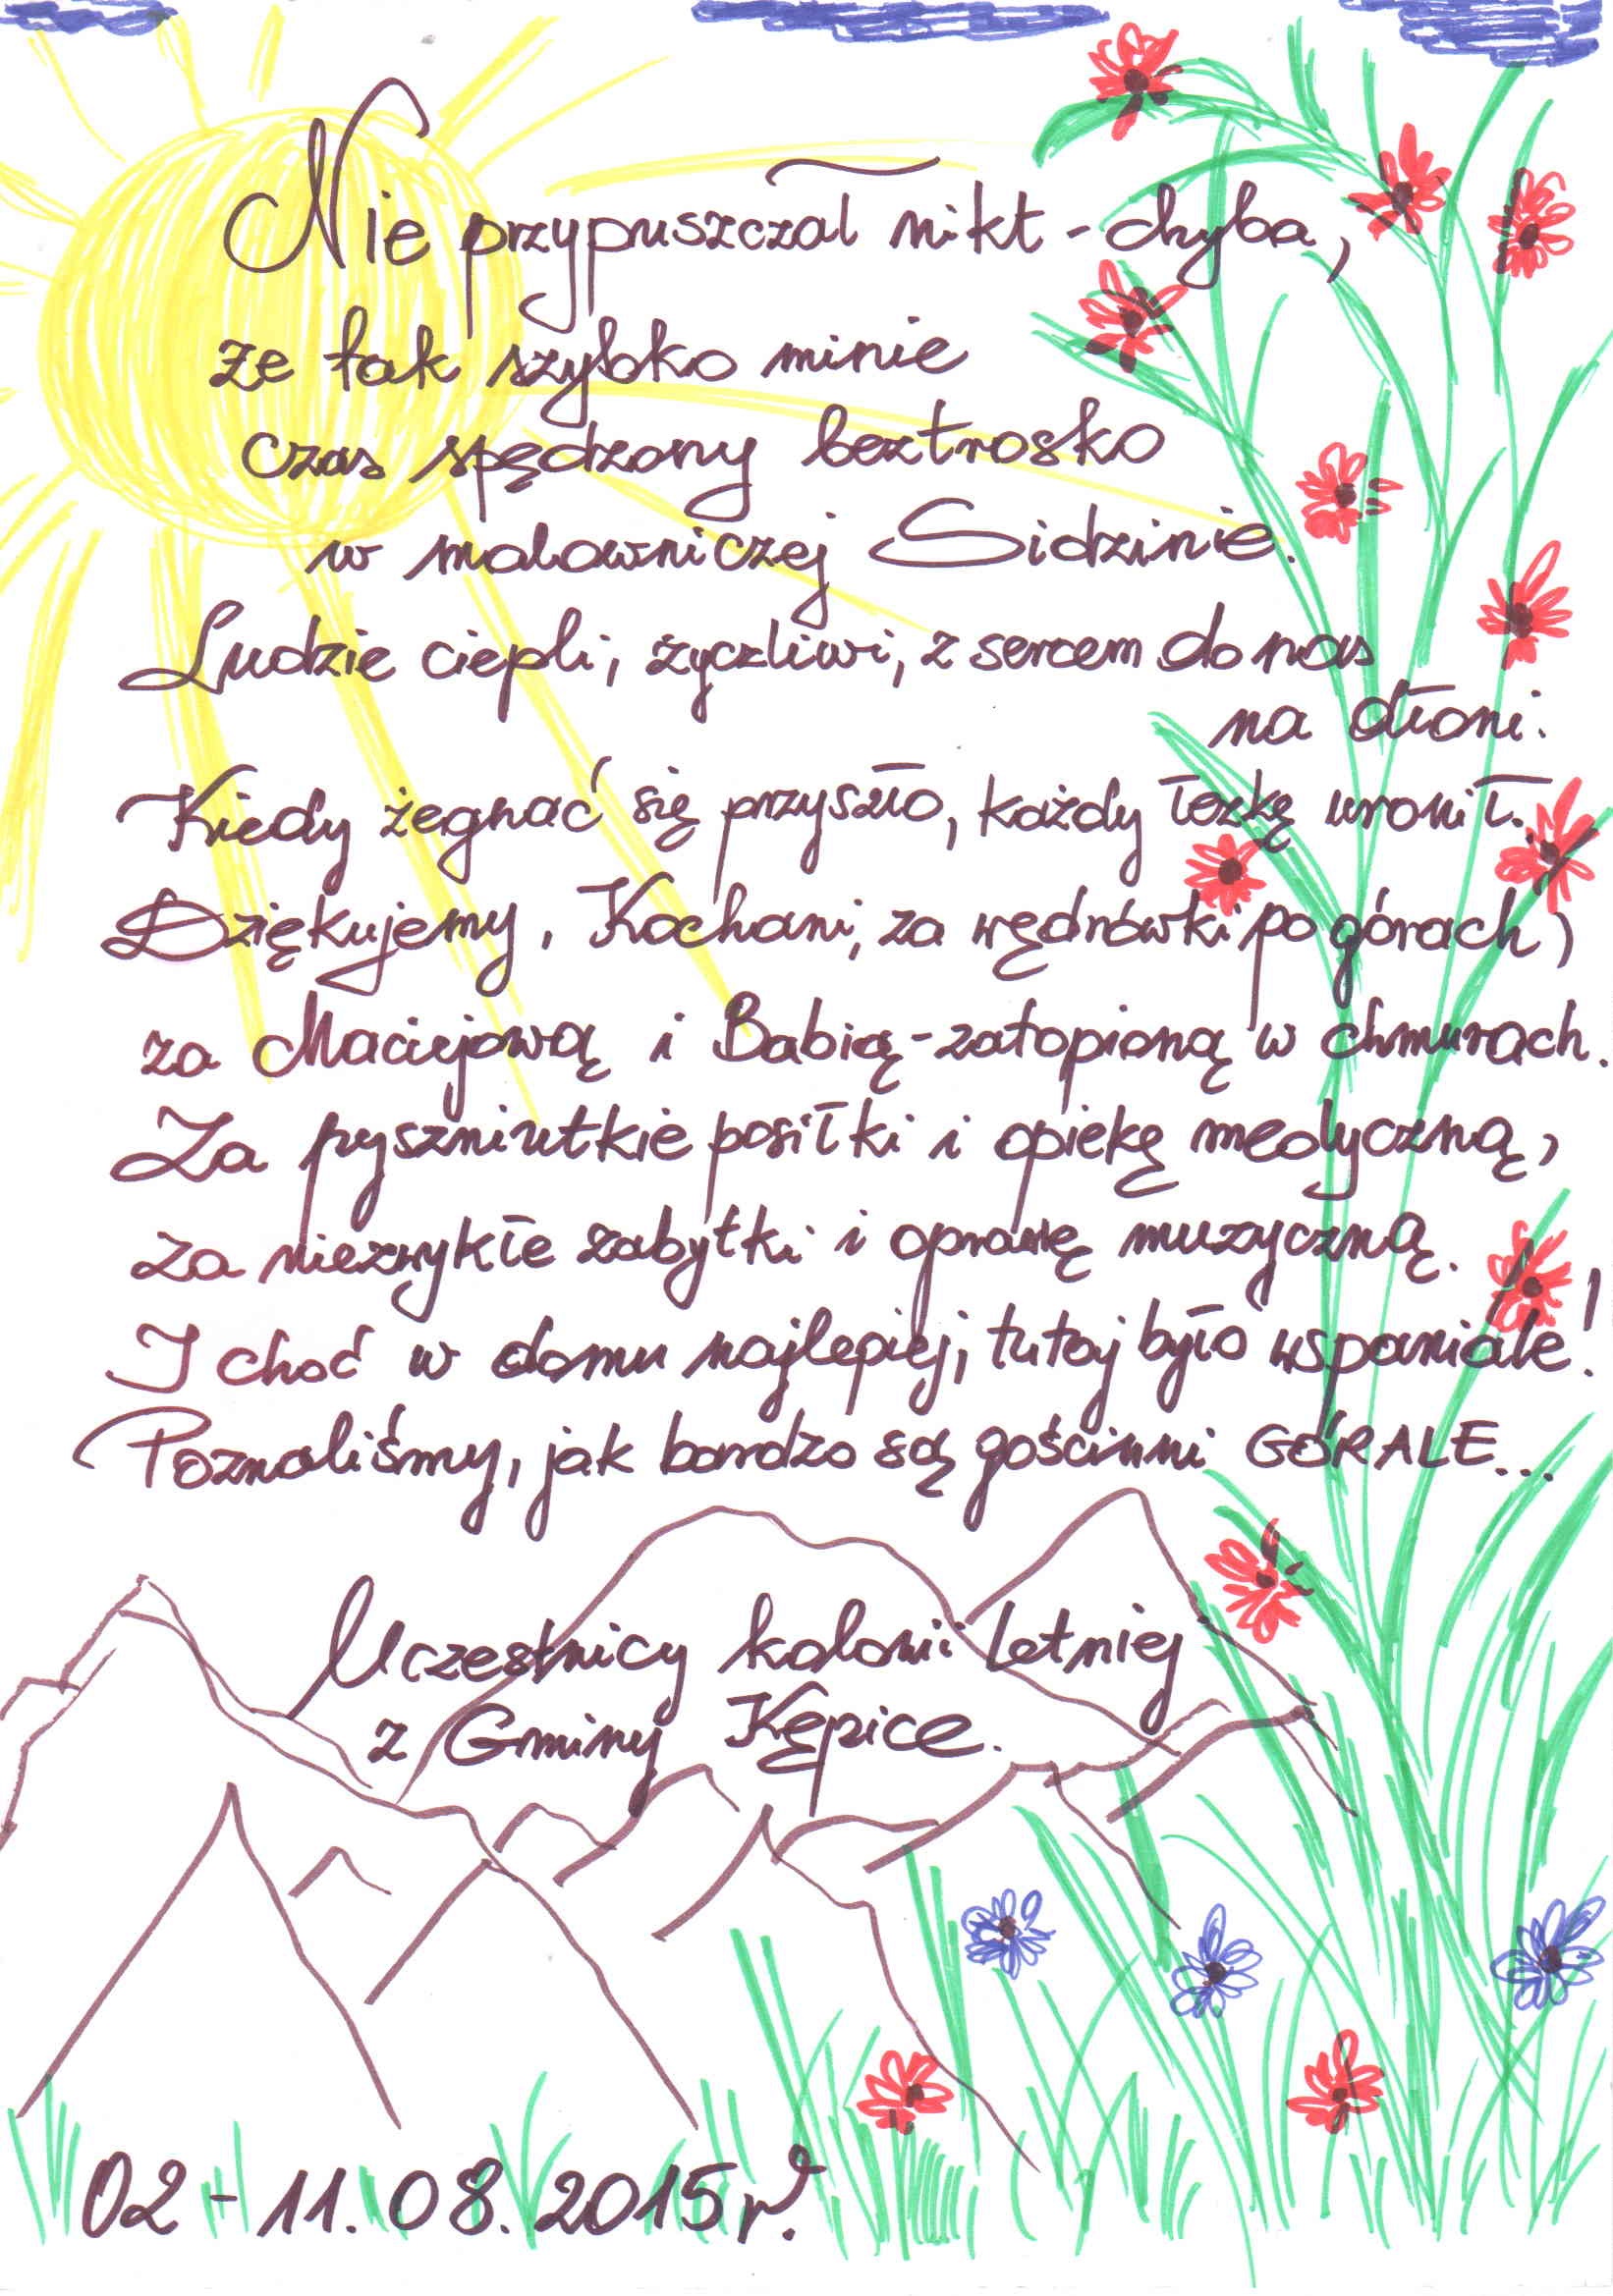 Nie przypuszczał nikt - chyba,
że tak szybko minie
czas spędzony beztrosko
w malowniczej Sidzinie.
Ludzie ciepli, życzliwi, z sercem do nas
na dłoni.
Kiedy żegnać się przyszło, każdy łezkę uronił.
Dziękujemy, Kochani, za wędrówki po górach,
za Maciejową i Babią - zatopioną w chmurach.
Za pyszniutkie posiłki i opiekę medyczną,
za niezwykłe zabytki i oprawę muzyczną.
I choć w domu najlepiej, tutaj było wspaniale!
Poznaliśmy, jak bardzo są gościnni GÓRALE...
Uczestnicy kolonii letniej
z Gminy Kępice.
02 - 11. 08. 2015 r.